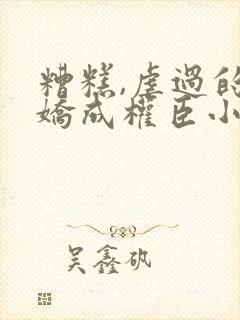 糟糕,虐過的
嬌成權臣小
吴鑫矾